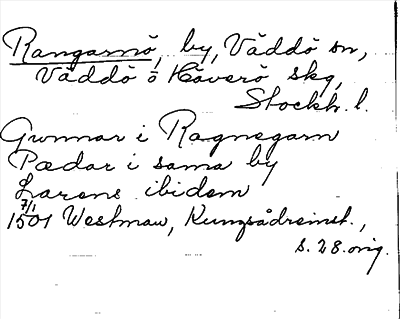 Rangarnö, by, Väddö sn,
Väddö o Häverö skg,
Stockh. l.
Gunnar i Ragnegarn
Pædar i sama by
Larens ibidem
7/1
1501 Westmaw, Kungsådreinst.,
s. 28. orig.